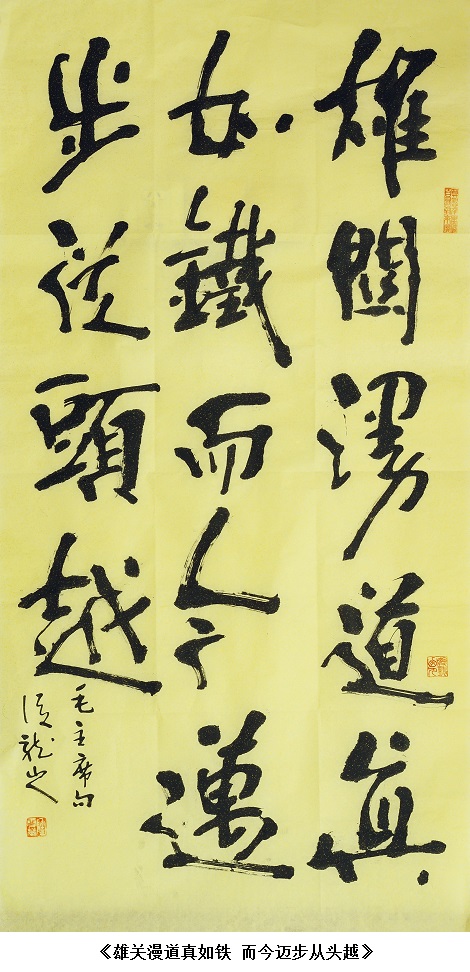 雄關漫道真
如鐵而今邁
步從頭越
毛主席句
《雄关漫道真如铁 而今迈步从头越》